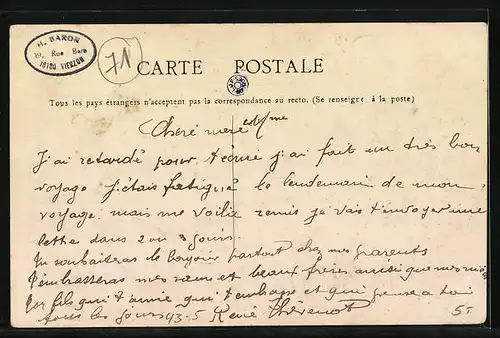 H. BARON
39, Rue Bara
18100 VIERZON
71
CARTE POSTALE
Tous les pays étrangers n'acceptent pas la correspondance au recto. (Se renseigner à la poste)
Chere mere
J'ai retardé pour t'ecrire j'ai fait un très bon
voyage j'etais fatigué le lendemain de mon
voyage mais me voilia remis je vais t'envoyer une
lettre dans 2 ou 3 jours.
Tu souhaiteras le bonjour partout chez mes parents
T'embrasseras mes sœurs et beaux freres ainsi que mes
ton fils qui t'aime qui t'embrasse et qui pense a toi
tous les jours 43-5 René Thévenot
5.